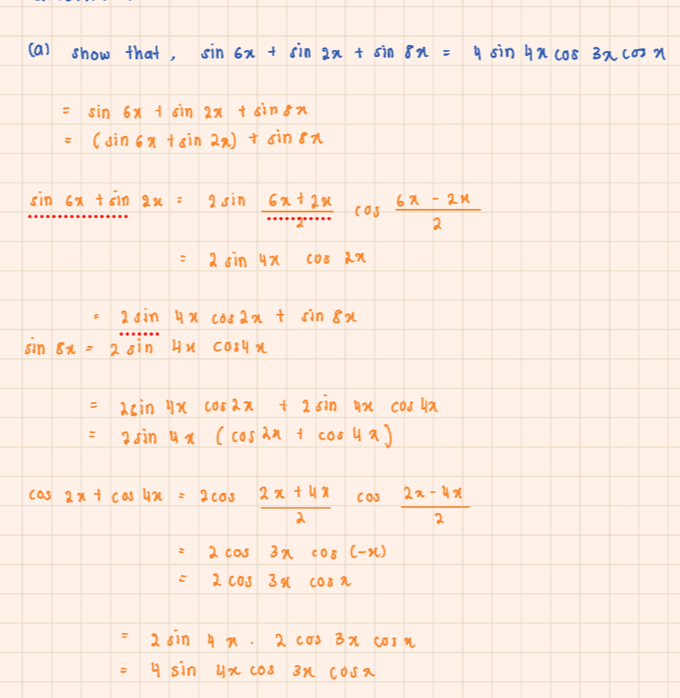 (a) show that, sin 6x + sin 2x + sin 8x = 4 sin 4x cos 3x cos x
= sin 6x + sin 2x + sin 8x
= (sin 6x + sin 2x) + sin 8x
sin 6x + sin 2x = 2 sin (6x + 2x)/2 cos (6x - 2x)/2
= 2 sin 4x cos 2x
= 2 sin 4x cos 2x + sin 8x
sin 8x = 2 sin 4x cos 4x
= 2 sin 4x cos 2x + 2 sin 4x cos 4x
= 2 sin 4x (cos 2x + cos 4x)
cos 2x + cos 4x = 2 cos (2x + 4x)/2 cos (2x - 4x)/2
= 2 cos 3x cos (-x)
= 2 cos 3x cos x
= 2 sin 4x . 2 cos 3x cos x
= 4 sin 4x cos 3x cos x